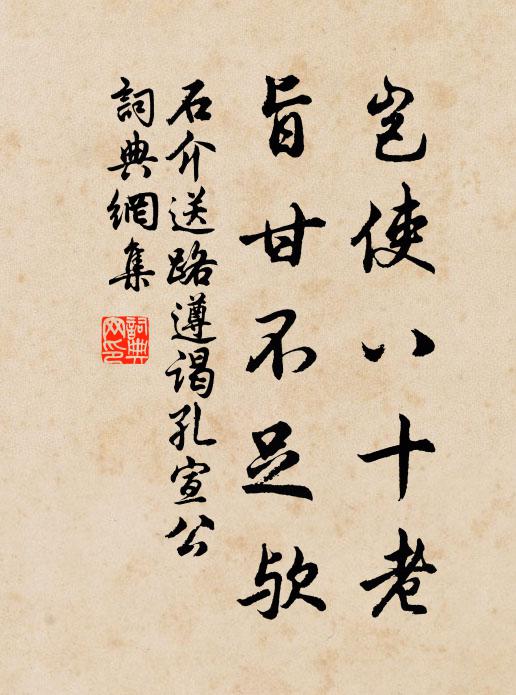 岂使八十老
旨甘不足欤
石介送路遵谒孔宣公
詞典網集
詞典網印